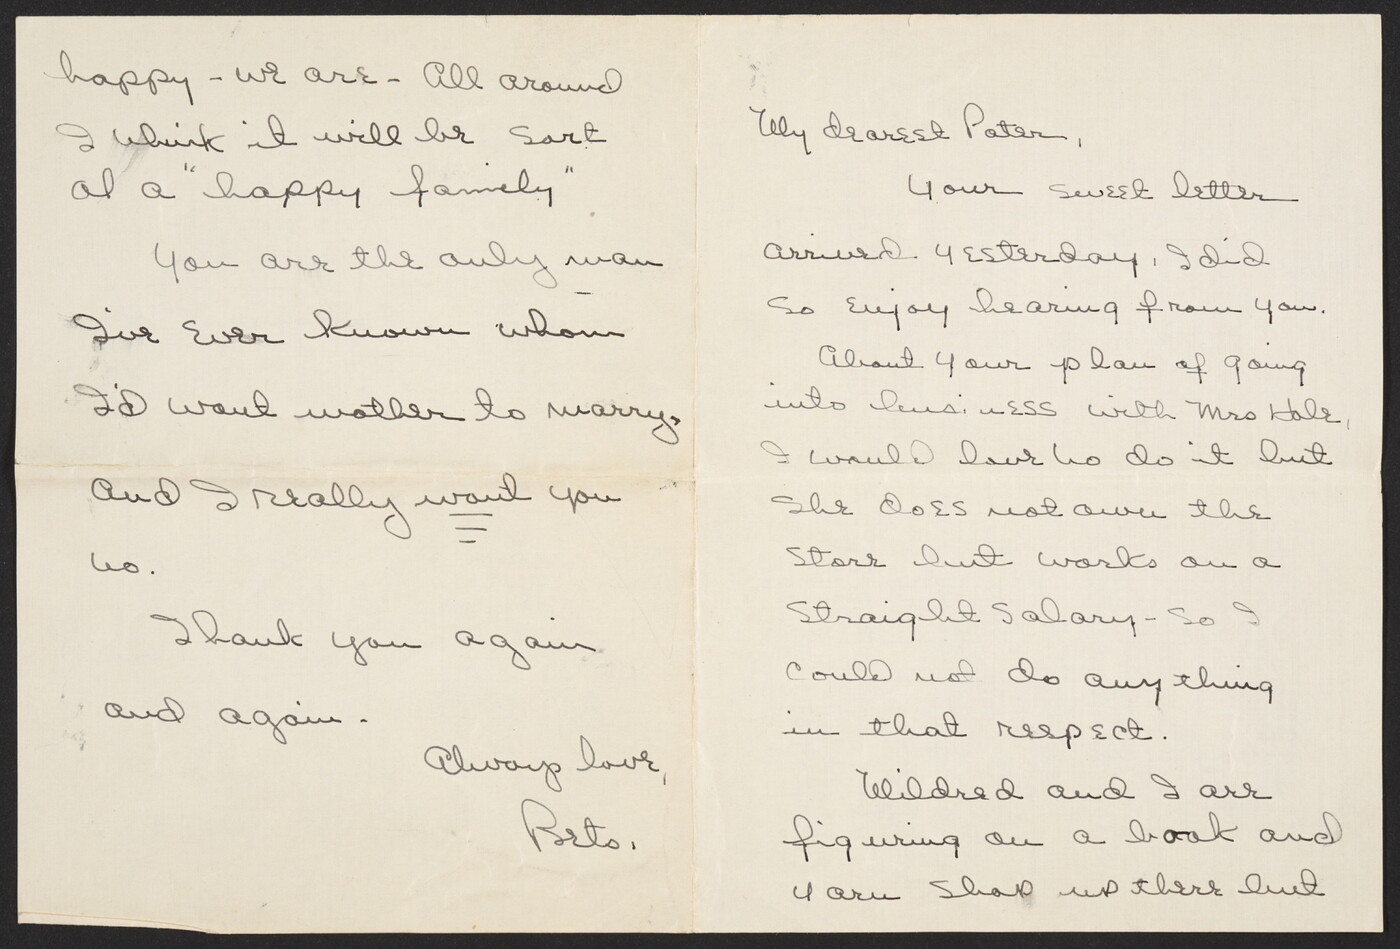 My dearest Pater,
Your sweet letter
arrived yesterday, I did
so enjoy hearing from you.
About your plan of going
into business with Mrs Hole,
I would love to do it but
she does not own the
store but works on a
straight salary - so I
could not do anything
in that respect.
Mildred and I are
figuring on a book and
yarn shop up there but
happy - we are - All around
I think it will be sort
of a "happy family"
You are the only man
I've ever known whom
I'd want mother to marry,
and I really want you
to.
Thank you again
and again -
Always love,
Bets.